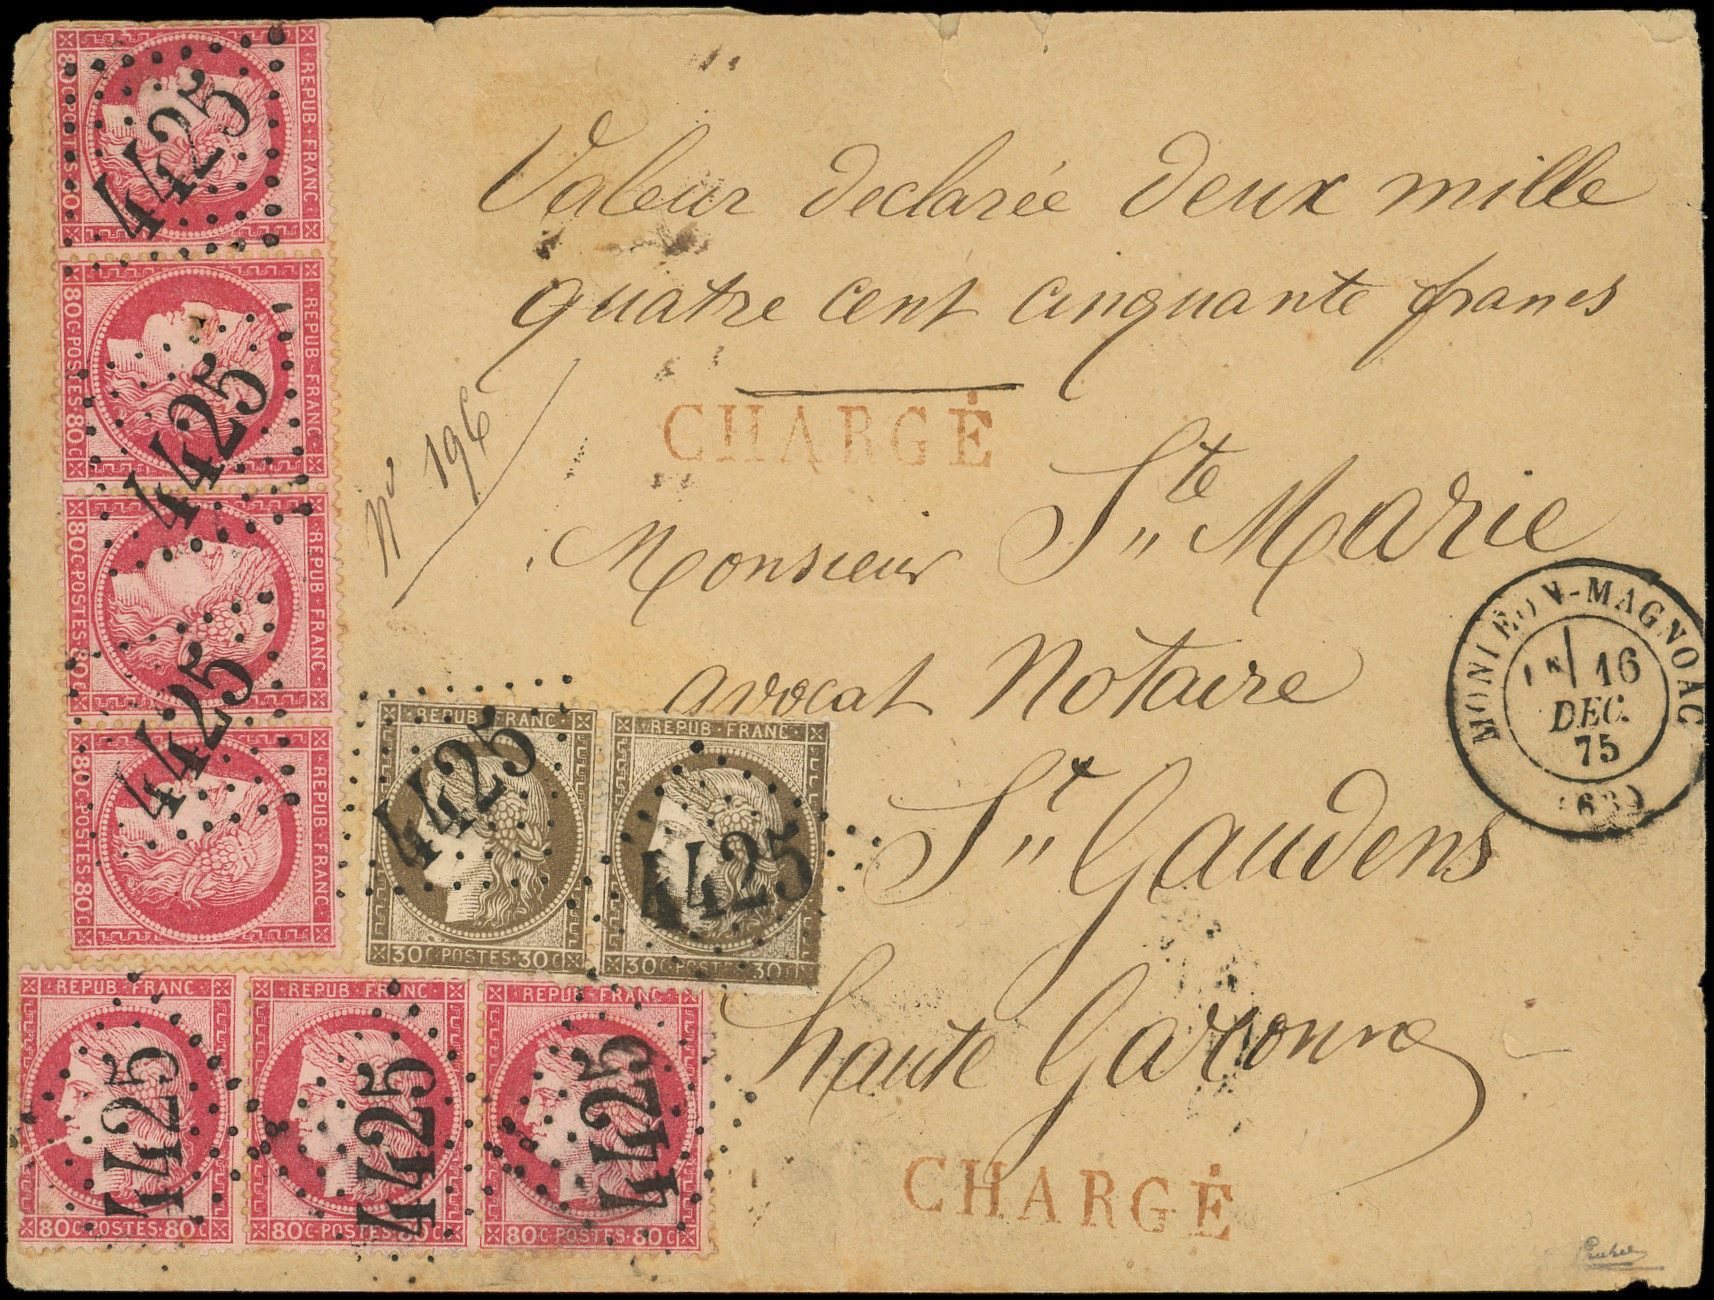 Valeur declarée deux mille
quatre cent cinquante francs
N° 196
CHARGÉ
Monsieur Ste Marie
avocat Notaire
St Gaudens
haute Garonne
CHARGÉ
MONLÉON-MAGNOAC
1E 16
DEC.
75
(63)
REPUB FRANC
80C POSTES 80C
4425
REPUB FRANC
80C POSTES 80C
4425
REPUB FRANC
80C POSTES 80C
4425
REPUB FRANC
80C POSTES 80C
REPUB FRANC
30C POSTES 30C
4425
REPUB FRANC
30C POSTES 30C
4425
REPUB FRANC
80C POSTES 80C
4425
REPUB FRANC
80C POSTES 80C
4425
REPUB FRANC
80C POSTES 80C
4425